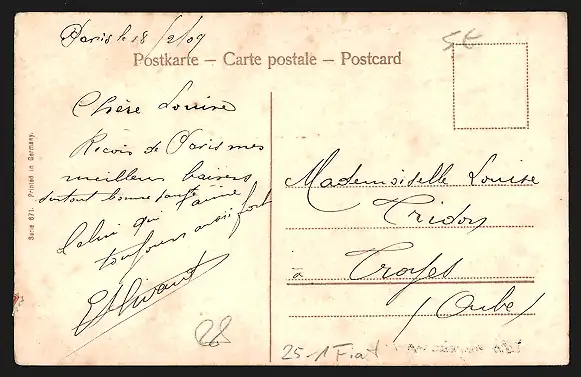 Paris le 18/2/09
5€
Postkarte – Carte postale – Postcard
Chère Louise
Reçois de Paris mes
meilleurs baisers
surtout bonne santé
Celui qui t'aime
toujours aussi fort
Mademoiselle Louise
Tridon
à Troyes
(Aube)
28
25-1 Fiat
Serie 671. Printed in Germany.